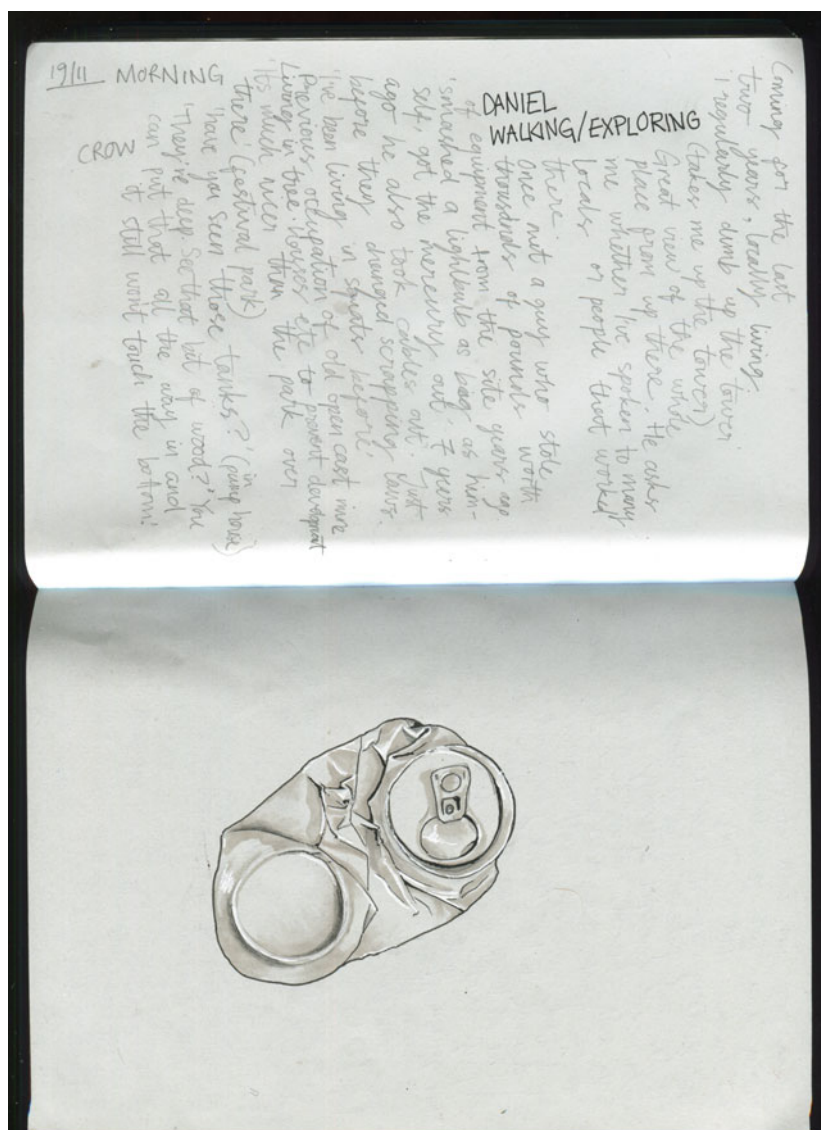 19/11 MORNING
CROW
DANIEL
WALKING/EXPLORING
Coming for the last
two years, locally living
'I regularly climb up the tower.
(takes me up the tower)
Great view of the whole
place from up there. He asks
me whether I've spoken to many
locals or people that worked
there.
Once met a guy who stole
thousands of pounds worth
of equipment from the site years ago.
'smashed a lightbulb as big as him-
self, got the mercury out. 7 years
ago he also took cables out. Just
before they changed scrapping laws.
'I've been living in squats before.'
Previous occupation of old open cast mine
Living in tree houses etc to prevent development
'It's much nicer than the park over
there' (festival park)
'have you seen those tanks?' (in pump house)
'They're deep. See that bit of wood? You
can put that all the way in and
it still wont touch the bottom.'